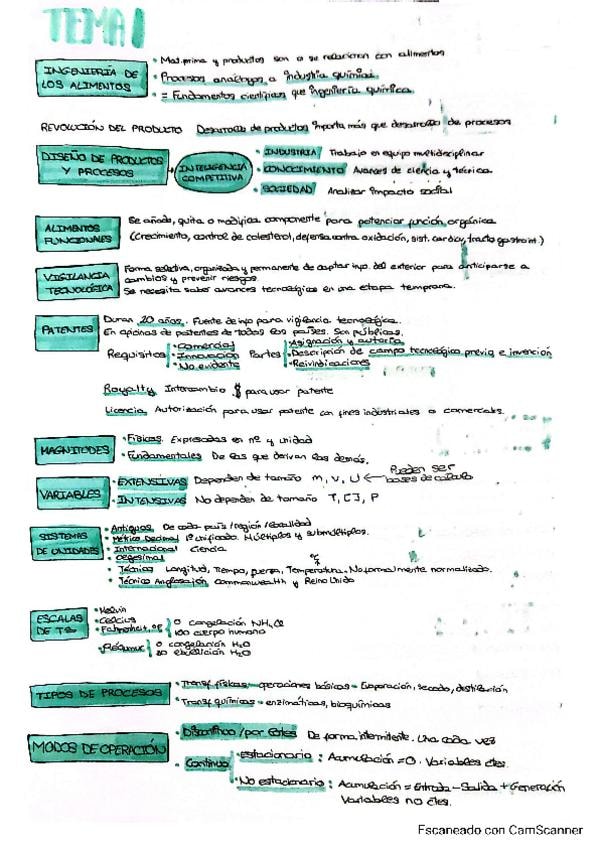 TEMA 1
INGENIERÍA DE LOS ALIMENTOS
• Mat. prima y productos son o se relacionan con alimentos
• Procesos análogos a industria química.
• = Fundamentos científicos que ingeniería química.
REVOLUCIÓN DEL PRODUCTO Desarrollo de productos importa más que desarrollo de procesos
DISEÑO DE PRODUCTOS Y PROCESOS
INTELIGENCIA COMPETITIVA
• INDUSTRIA Trabajo en equipo multidisciplinar
• CONOCIMIENTO Avances de ciencia y técnica
• SOCIEDAD Analizar impacto social
ALIMENTOS FUNCIONALES
Se añade, quita o modifica componente para potenciar función orgánica
(Crecimiento, control de colesterol, defensa contra oxidación, sist. cardiov, tracto gastroint.)
VIGILANCIA TECNOLÓGICA
Forma selectiva, organizada y permanente de captar info. del exterior para anticiparse a
cambios y prevenir riesgos.
Se necesita saber avances tecnológicos en una etapa temprana.
PATENTES
Duran 20 años. Fuente de info para vigilancia tecnológica.
En oficinas de patentes de todos los países. Son públicas.
Requisitos
• Comercial
• Innovación
• No evidente
Partes
• Asignación y autoría
• Descripción de campo tecnológico previo e invención
• Reivindicaciones
Royalty Intercambio $ para usar patente
Licencia Autorización para usar patente con fines industriales o comerciales.
MAGNITUDES
• Físicas. Expresadas en nº y unidad
• Fundamentales De las que derivan las demás.
VARIABLES
• EXTENSIVAS Dependen de tamaño m, v, U ← Pueden ser bases de cálculo
• INTENSIVAS No dependen de tamaño T, [], P
SISTEMAS DE UNIDADES
• Antiguos De cada país/región/localidad
• Métrico Decimal 1º unificado. Múltiplos y submúltiplos.
• Internacional Ciencia
• Cegesimal
• Técnico Longitud, tiempo, fuerza, temperatura. No formalmente normalizado.
• Técnico Anglosajón Commonwealth y Reino Unido
ESCALAS DE Tª
• Kelvin
• Celcius
• Fahrenheit, ºF
0 congelación NH₄Cl
100 cuerpo humano
• Réaumur
0 congelación H₂O
80 ebullición H₂O
TIPOS DE PROCESOS
• Transf. físicas - operaciones básicas - Evaporación, secado, destilación
• Transf. químicas - enzimáticas, bioquímicas
MODOS DE OPERACIÓN
• Discontinuo / por lotes De forma intermitente. Una cada vez
• Continuo
• Estacionario : Acumulación = 0. Variables ctes.
• No estacionario : Acumulación = Entrada - Salida + Generación
Variables no ctes.
Escaneado con CamScanner